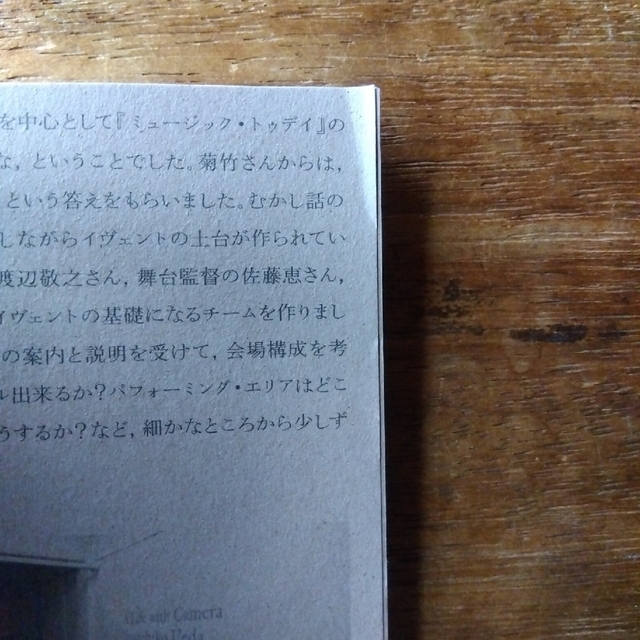 を中心として『ミュージック・トゥデイ』の
な，ということでした。菊竹さんからは，
という答えをもらいました。むかし話の
しながらイヴェントの土台が作られてい
渡辺敬之さん，舞台監督の佐藤恵さん，
イヴェントの基礎になるチームを作りまし
の案内と説明を受けて，会場構成を考
ル出来るか？パフォーミング・エリアはどこ
うするか？など，細かなところから少しず
Camera